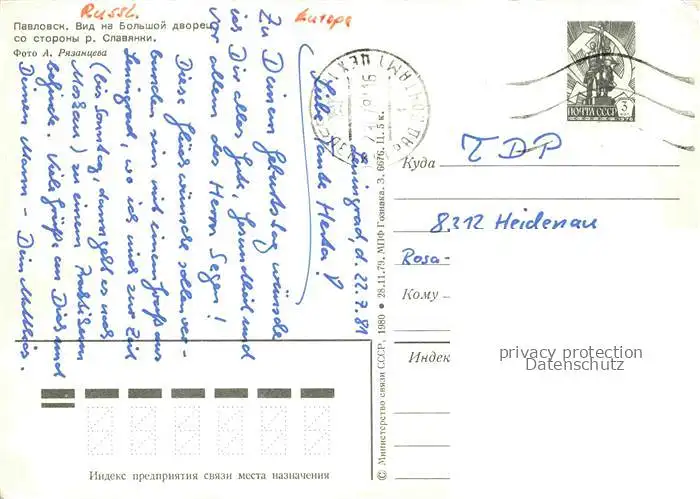 Russl.
Europa
Павловск. Вид на Большой дворец
со стороны р. Славянки.
Фото А. Рязанцева
Leningrad, d. 22.7.81
Liebe Tante Herta!
Zu Deinem Geburtstag wünsche
ich Dir alles Gute, Gesundheit und
vor allem des Herrn Segen!
Diese Glückwünsche sollen ver-
bunden sein mit einem Gruß aus
Leningrad, wo ich mich zur Zeit
(bis Sonntag, dann geht es nach
Moskau) zu einem Praktikum
befinde. Viele Grüße an Dich und
Deinen Mann - Dein Matthias.
ПОЧТА СССР
3
КОП
1976
Куда
TDP
8312 Heidenau
Rosa-
Кому
Индекс
privacy protection
Datenschutz
Индекс предприятия связи места назначения
© Министерство связи СССР, 1980 • 28.11.79. МПФ Гознака. З. 6676. Ц. 5 к.